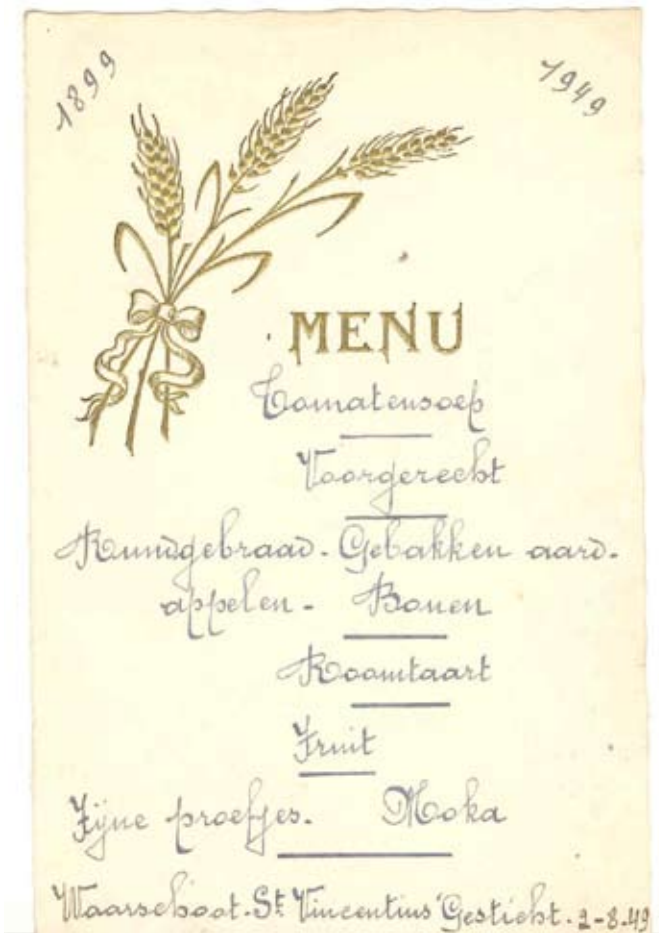 1899 1949
MENU
Tomatensoep
Voorgerecht
Rundgebraad - Gebakken aard-
appelen - Bonen
Roomtaart
Fruit
Fijne proefjes. Moka
Waarschoot. St Vincentius' Gesticht. 2-8-49